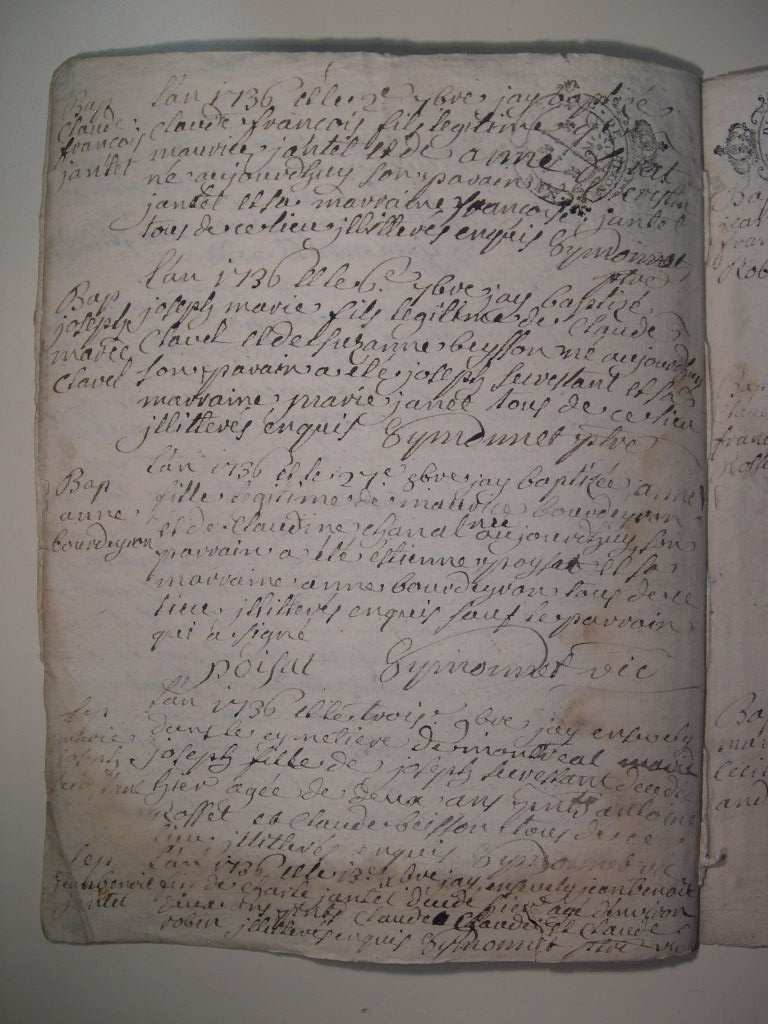 Bap
Claude
francois
jantet
L'an 1736 et le 2e 7bre jay baptisé
Claude francois fils legitime de
maurice jantet et de anne
ne aujourdhuy son parain
jantet et sa marraine francoise jantet
tous de ce lieu jllitterés enquis Eymonnet
ptre
Bap
joseph
marie
Clavel
L'an 1736 et le 6e 7bre jay baptisé
joseph marie fils legitime de Claude
Clavel et de Suzanne beysson né aujourdhuy
son parain a été joseph Servestant et sa
marraine marie janet tous de ce lieu
jllitterés enquis Eymonnet ptre
Bap
anne
bourdeyron
L'an 1736 et le 27e 8bre jay baptisée anne
fille legitime de maurice bourdeyron
et de Claudine Chanal née aujourdhuy son
parrain a été estienne poysat et sa
marraine anne bourdeyron tous de ce
lieu jllitterés enquis sauf le parrain
qui a signé
poisat Eymonnet vic
L'an 1736 et le trois 9bre jay ensevely
dans le cymetiere de montreal marie
joseph fille de joseph Servestant decedée
hier agée de deux ans pnts antoine
Rosset et Claude beisson tous de ce
lieu jllitterés enquis Eymonnet vic
Sep
jeanbenoit
jantel
L'an 1736 et le 13e 9bre jay ensevely jeanbenoit
fils de Charle jantel decedé hier agé denviron
deux ans pnts Claude Clavel et Claude
robin jllitterés enquis Eymonnet ptre vic